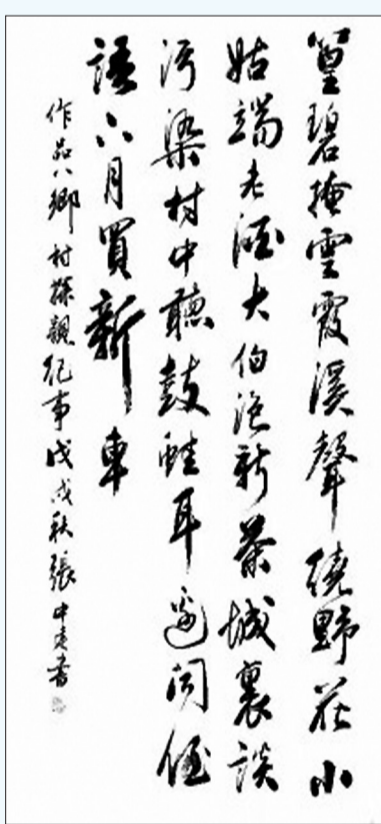 篁碧掩雲霞溪聲繞野花小
姑端老酒大伯泡新茶城裏談
污染村中聽鼓蛙耳邊聞侄
語六月買新車
作品八鄉村探親紀事戊戌秋張中書